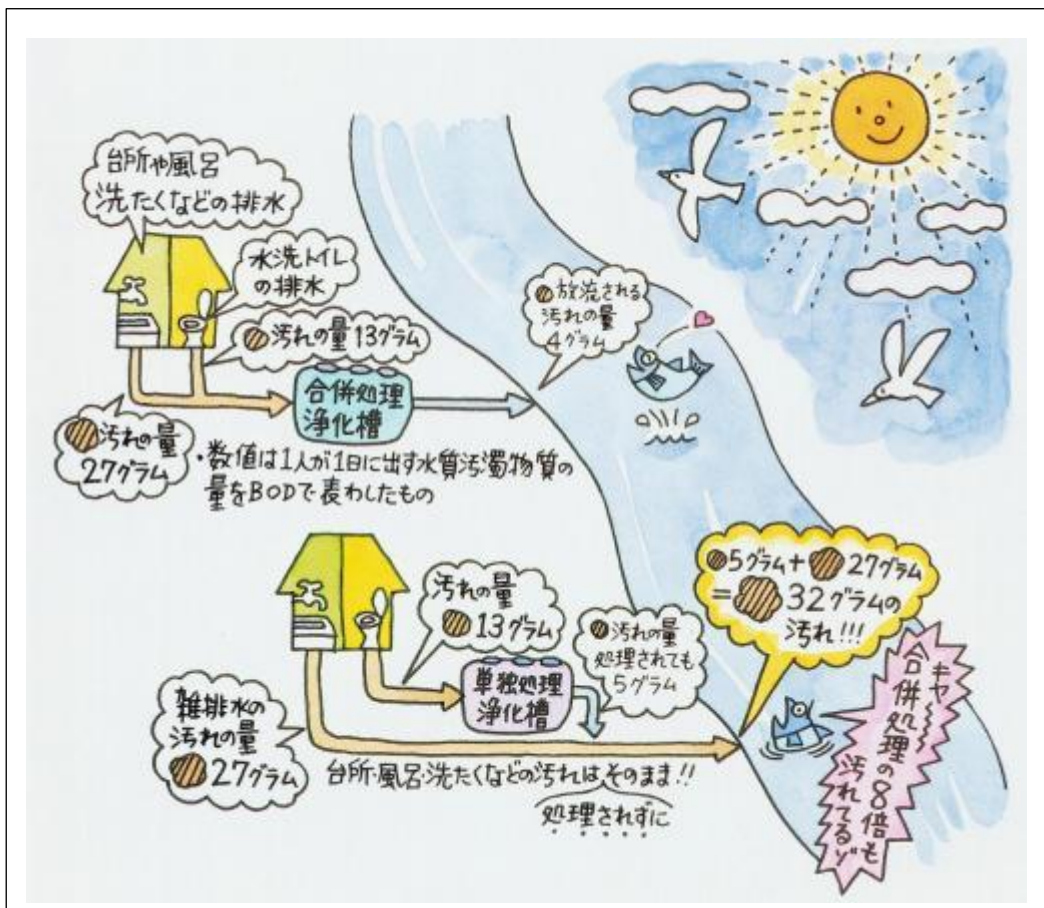 台所や風呂
洗たくなどの排水
水洗トイレ
の排水
汚れの量13グラム
合併処理
浄化槽
放流される
汚れの量
4グラム
汚れの量
27グラム
・数値は1人が1日に出す水質汚濁物質の
量をBODで表わしたもの
汚れの量
13グラム
単独処理
浄化槽
汚れの量
処理されても
5グラム
雑排水の
汚れの量
27グラム
台所・風呂・洗たくなどの汚れは、そのまま!!
処理されずに
5グラム+27グラム
=32グラムの
汚れ!!!
キャ〜〜〜
合併処理の8倍も
汚れてるゾ